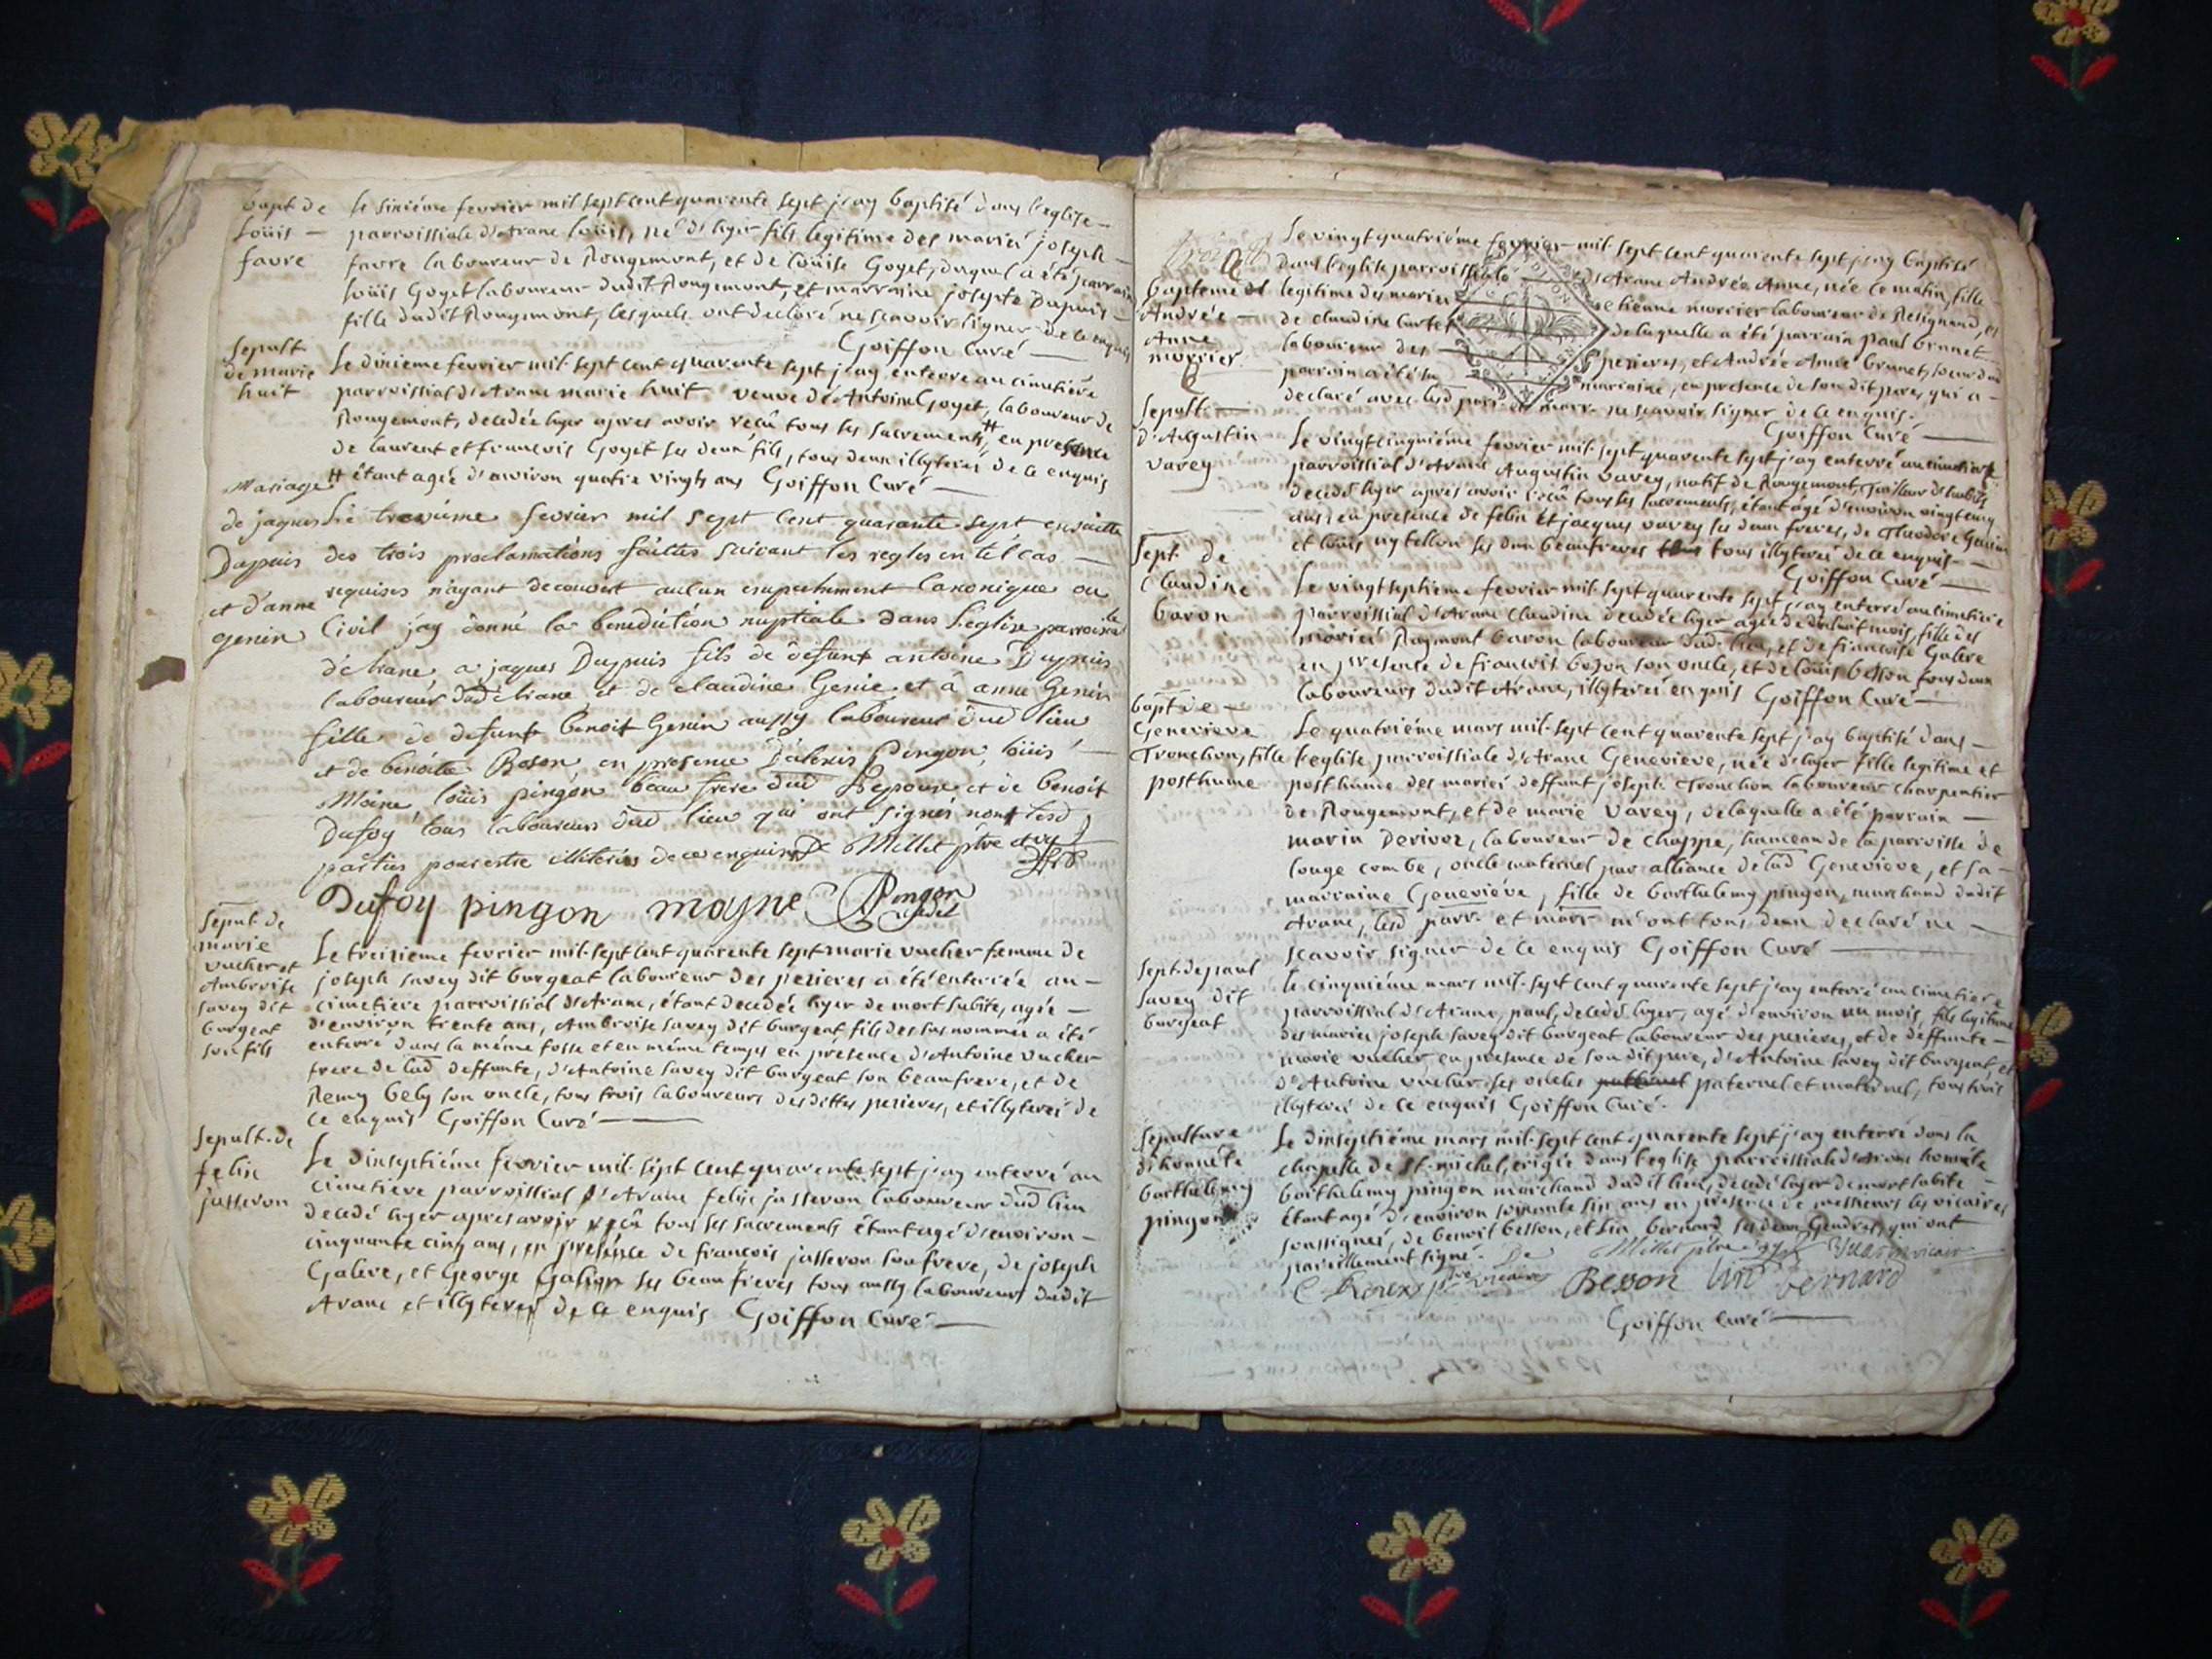 bapt. de
Loüis —
favre
Le sixiéme fevrier mil sept cent quarente sept j'ay baptisé dans l'eglise —
parroissiale d'Arane Loüis, né d'hyer fils legitime des mariés joseph —
favre laboureur de Rougemont, et de Loüise Goyet, duquel a été parrain
Loüis Goyet laboureur dudit Rougemont, et marraine josepte Dupuis —
fille dudit Rougemont, lesquels ont declaré ne scavoir signer de ce enquis
Goiffon Curé —
Sepult.
de marie
huit
Le dixieme fevrier mil sept cent quarente sept j'ay enterré au cimetiére
parroissial d'Arane marie huit veuve de Antoine Goyet, laboureur de
Rougemont, decedée hyer apres avoir reçû tous ses sacrements # en presence
de laurent et francois Goyet ses deux fils, tous deux illyterés de ce enquis
# étant agée d'environ quatre vingts ans Goiffon Curé —
Mariage
de jaques
Dupuis
et d'anne
genin
Le treziéme fevrier mil sept cent quarante sept ensuitte
des trois proclamations faittes suivant les regles en tel cas —
requises n'ayant decouvert aucun empechement Canonique ou
Civil j'ay donné la benediction nuptiale dans l'eglise parroissiale
d'érane, a jaques Dupuis fils de defunt antoine Dupuis
laboureur dud érane et de claudine Genie et à anne Genin
fille de defunt benoit Genin aussy laboureur dud lieu
et de benoite Boson, en presence d'alexis Pingon, loüis —
Moine loüis pingon beau frere dud Lepoux et de benoit
Dufoy tous laboureurs dud lieu qui ont signés non lesd
parties pour estre illiterés de ce enquis De Millet ptre et vic
Dufoy pingon moyne Pingon
cadet
Sepult. de
marie
vucher et
Ambroise
savey dit
burgeat
son fils
Le treizieme fevrier mil sept cent quarente sept marie vucher femme de
joseph savey dit burgeat laboureur des pezieres a été enterrée au —
cimetiere parroissial d'Arane, étant decedée hyer de mort subite, agée —
d'environ trente ans, Ambroise savey dit burgeat, fils des susnommés a été
enterré dans la méme fosse et en méme temps en présence d'Antoine vucher
frere de lad deffunte, d'Antoine savey dit burgeat son beaufrere, et de
Remy bely son oncle, tous trois laboureurs desdittes pezieres, et illyterés de
ce enquis Goiffon Curé —
Sepult. de
felix
jasseron
Le dixseptiéme fevrier mil sept cent quarente sept j'ay enterré au
cimetiere parroissial d'Arane felix jasseron laboureur dud lieu
decedé hyer apres avoir reçû tous ses sacrements étant agé d'environ —
cinquante cinq ans, en presénce de francois jasseron son frere, de joseph
Galere, et George Galion ses beaufreres tous aussy laboureurs dudit
Arane et illyterés de ce enquis Goiffon Curé —
Bapteme d'
Andrée —
Anne
morrier
Le vingt quatriéme fevrier mil sept cent quarente sept j'ay baptisé
dans l'eglise parroissiale d'Arane Andrée Anne, née ce matin, fille
legitime des mariés etienne morrier laboureur de Resignand, et
de claudine Curtet de laquelle a été parrain paul brunet
laboureur des pezieres, et Andrée Anne brunet, soeur dud
parrain a été sa marraine, en presence de son dit pere, qui a —
declaré avec lesd parr. et marr. ne scavoir signer de ce enquis.
Goiffon Curé —
Sepult. —
d'Augustin
varey
Le vingtcinquiéme fevrier mil sept quarente sept j'ay enterré au cimetiere
parroissial d'Arane Augustin varey, natif de Rougemont, tailleur d'habits
decedé hyer apres avoir reçû tous ses sacrements, étant agé d'environ vingt cinq
ans, en presence de felix et jacques varey ses deux freres, de Theodore Genin
et loüis uytellon ses deux beaufreres tous illyterés de ce enquis —
Goiffon Curé —
Sept. de
Claudine
baron
Le vingtseptieme fevrier mil sept quarente sept j'ay enterré au cimetiere
parroissial d'Arane Claudine decedée hyer agée de dixhuit mois, fille des
mariés Raymont baron laboureur dud. lieu, et de francoise Galere
en presence de francois bozon son oncle, et de Loüis besson tous deux
laboureurs dudit Arane, illyterés enquis Goiffon Curé —
bapt. de —
Genevieve
Tronchon, fille
posthume
Le quatriéme mars mil sept cent quarente sept j'ay baptisé dans —
l'eglise parroissiale d'Arane Genevieve, née d'hyer fille legitime et
posthume des mariés deffunt joseph Tronchon laboureur charpentier
de Rougemont, et de marie varey, de laquelle a été parrain —
marin Derivoz, laboureur de chappe, hameau de la parroisse de
longe combe, oncle maternel par alliance de lad Genevieve, et sa —
marraine Geneviéve, fille de barthelemy pingon, marchand dudit
Arane, lesd parr. et marr. m'ont tous deux declaré ne —
scavoir signer de ce enquis Goiffon Curé —
Sept. de paul
savey dit
burgeat
Le cinquiéme mars mil sept cent quarente sept j'ay enterré au cimetiere
parroissial d'Arane, paul, decedé hyer, agé d'environ un mois, fils legitime
des mariés joseph savey dit burgeat laboureur des pezieres, et de deffunte —
marie vucher en presence de son dit pere, d'Antoine savey dit burgeat et
d'Antoine vucher ses oncles paternel et maternel, tous trois
illyterés de ce enquis Goiffon Curé.
Sepulture
d'honnéte
barthelemy
pingon
Le dixseptiéme mars mil sept cent quarente sept j'ay enterré dans la
chapelle de St. michel, erigée dans l'eglise parroissiale d'Arane honnéte
barthelemy pingon marchand dudit lieu, decedé hyer de mort subite —
étant agé d'environ soixante six ans en présence de messieurs les vicaires
soussignés, de benoit besson, et Lin bernard ses deux Gendres, qui ont
pareillement signé. De Millet ptre vic vicaire
ptre vicaire Besson Lin bernard
Goiffon Curé —